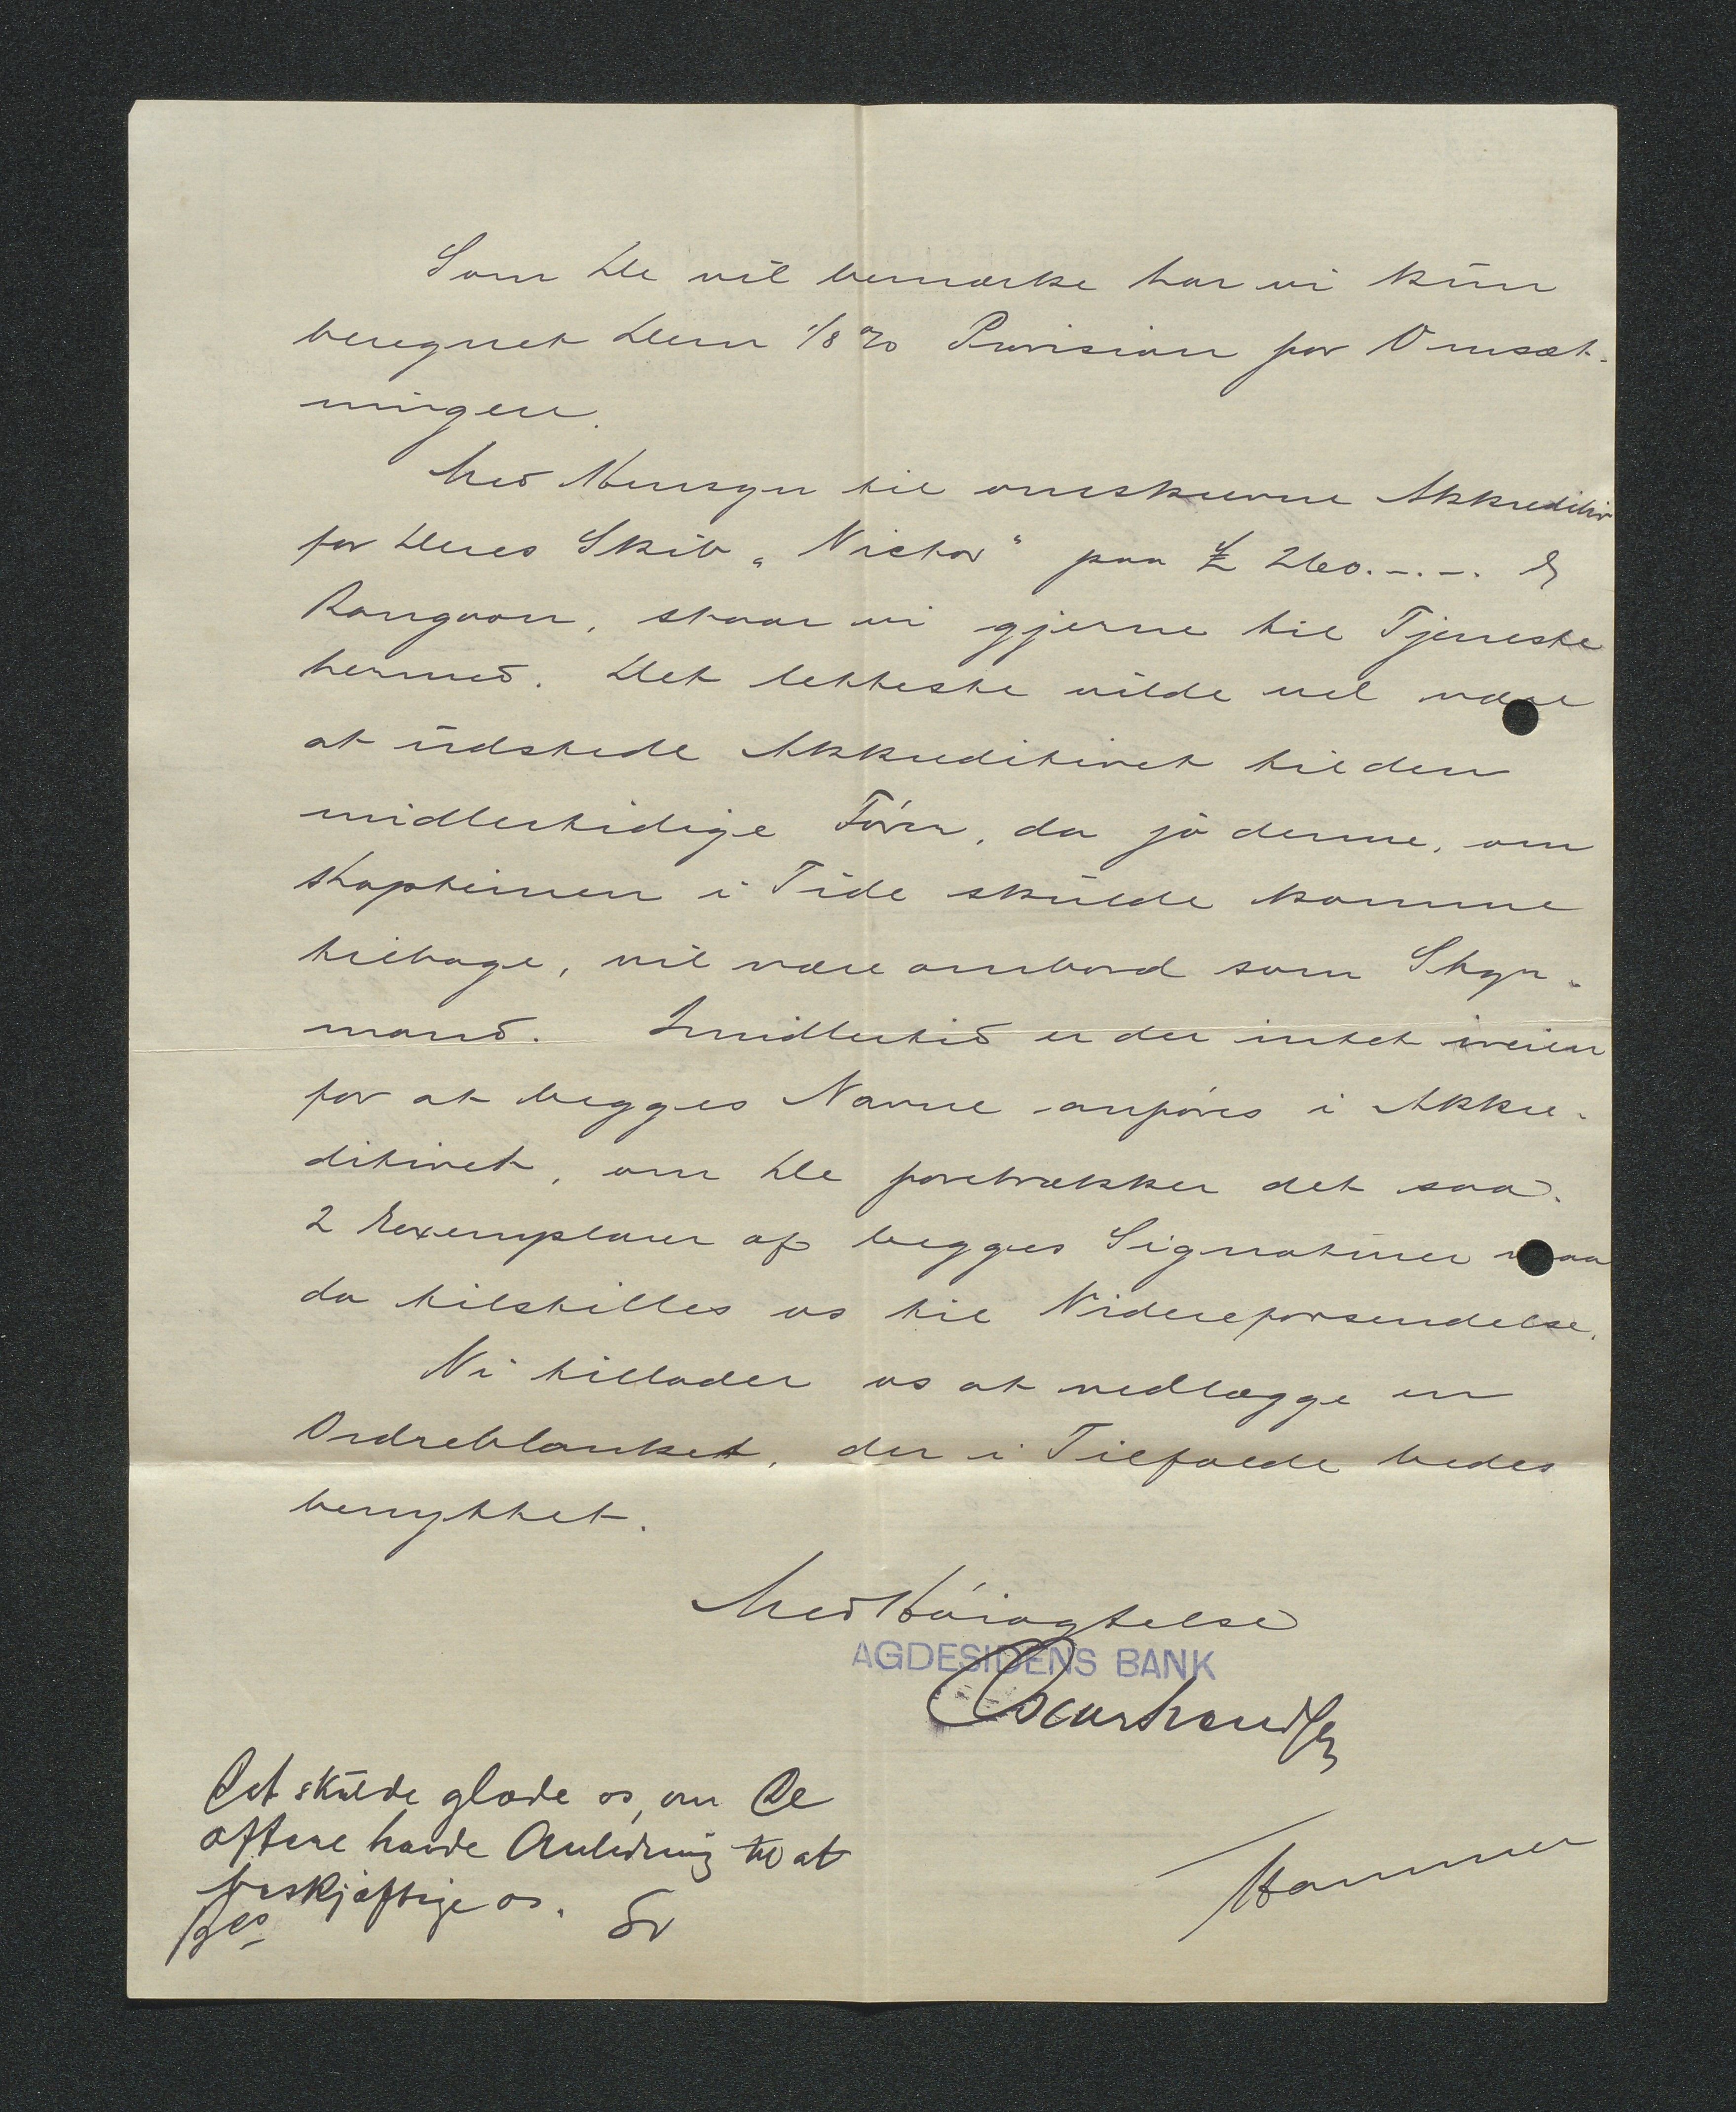 Som De vil bemærke har vi kun
beregnet Dem 1/8 % Provision for Omsæt-
ningen.
Med Hensyn til omskrevne Akkreditiv
for Deres Skib „Victor" paa £ 260.-.-. &
Rangoon, staar vi gjerne til Tjeneste
hermed. Det letteste vilde vel være
at udstede Akkreditivet til den
midlertidige Fører, da jo denne, om
Kapteinen i Tide skulde komme
tilbage, vil være ombord som Styr-
mand. Imidlertid er der intet iveien
for at begges Navne anføres i Akkre-
ditivet, om De foretrækker det saa.
2 Exemplarer af begges Signaturer maa
da tilstilles os til Videreforsendelse.
Vi tillader os at vedlægge en
Ordreblanket, der i Tilfælde bedes
benyttet.
Med Høiagtelse
AGDESIDENS BANK
Det skulde glæde os, om De
oftere havde Anledning til at
beskjæftige os.
Hammer